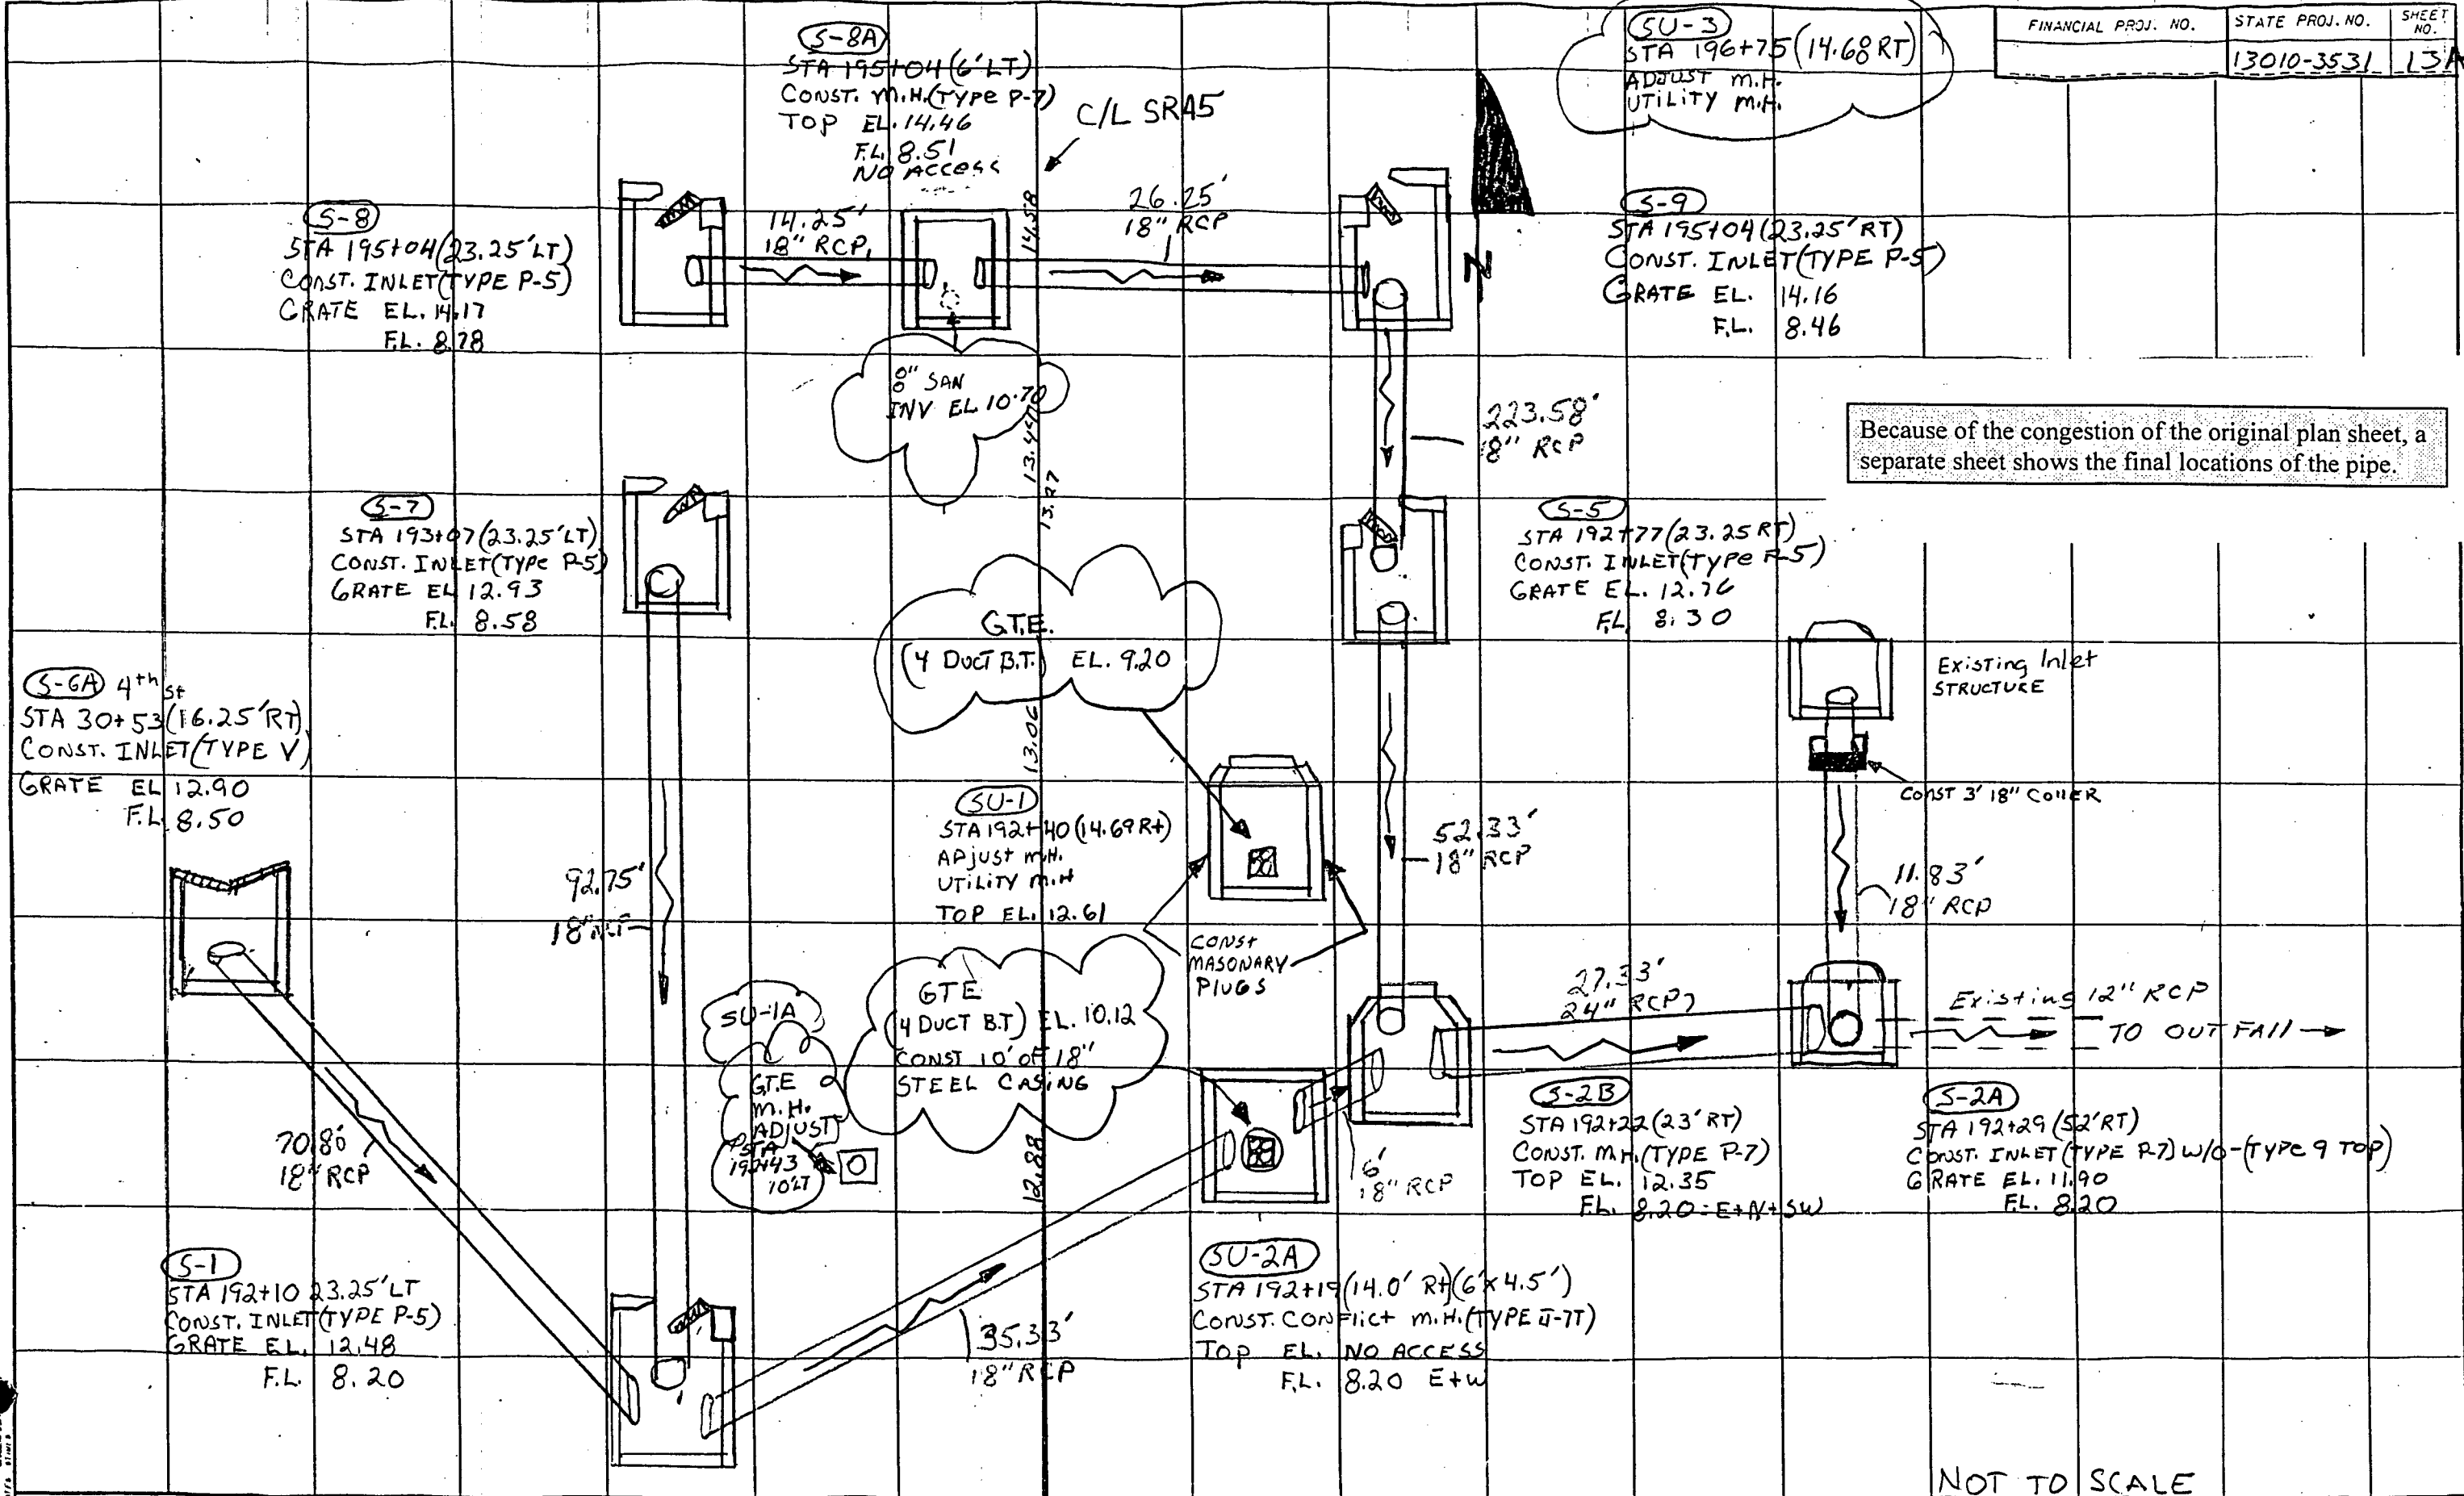 FINANCIAL PROJ. NO.
STATE PROJ. NO.
SHEET NO.
13010-3531
13A
S-8A
STA 195+04 (6' LT)
CONST. M.H. (TYPE P-7)
TOP EL. 14.46
F.L. 8.51
NO ACCESS
C/L SR45
SU-3
STA 196+75 (14.68 RT)
ADJUST M.H.
UTILITY M.H.
S-8
STA 195+04 (23.25' LT)
CONST. INLET (TYPE P-5)
GRATE EL. 14.17
F.L. 8.78
14.25'
18" RCP
14.58
26.25'
18" RCP
N
S-9
STA 195+04 (23.25' RT)
CONST. INLET (TYPE P-5)
GRATE EL. 14.16
F.L. 8.46
8" SAN
INV EL 10.70
13.27
223.58'
18" RCP
Because of the congestion of the original plan sheet, a
separate sheet shows the final locations of the pipe.
S-7
STA 193+07 (23.25' LT)
CONST. INLET (TYPE P-5)
GRATE EL 12.93
F.L. 8.58
S-5
STA 192+77 (23.25 RT)
CONST. INLET (TYPE P-5)
GRATE EL. 12.76
F.L. 8.30
G.T.E.
(4 DUCT B.T.) EL. 9.20
13.06
Existing Inlet
STRUCTURE
S-6A 4th St
STA 30+53 (16.25' RT)
CONST. INLET (TYPE V)
GRATE EL 12.90
F.L. 8.50
CONST 3' 18" COllER
SU-1
STA 192+40 (14.69 Rt)
ADjUST M.H.
UTILITY M.H
TOP EL. 12.61
52.33'
18" RCP
92.75'
18"
11.83'
18" RCP
CONST
MASONARY
PlUGS
SU-1A
G.T.E
M.H.
ADJUST
STA
192+43
10'LT
GTE
(4 DUCT B.T) EL. 10.12
CONST 10' OF 18"
STEEL CASING
27.33'
24" RCP
Existing 12" RCP
TO OUT FAll
70.80
18" RCP
12.88
6'
18" RCP
S-2B
STA 192+22 (23' RT)
CONST. M.H. (TYPE P-7)
TOP EL. 12.35
F.L. 8.20 = E+N+SW
S-2A
STA 192+29 (52' RT)
CONST. INLET (TYPE P-7) W/O-(TYPE 9 TOP)
GRATE EL. 11.90
F.L. 8.20
S-1
STA 192+10 23.25' LT
CONST. INLET (TYPE P-5)
GRATE EL. 12.48
F.L. 8.20
35.33'
18" RCP
SU-2A
STA 192+19 (14.0' Rt) (6' X 4.5')
CONST. CONFlict M.H. (TYPE J-7T)
TOP EL. NO ACCESS
F.L. 8.20 E+W
NOT TO SCALE